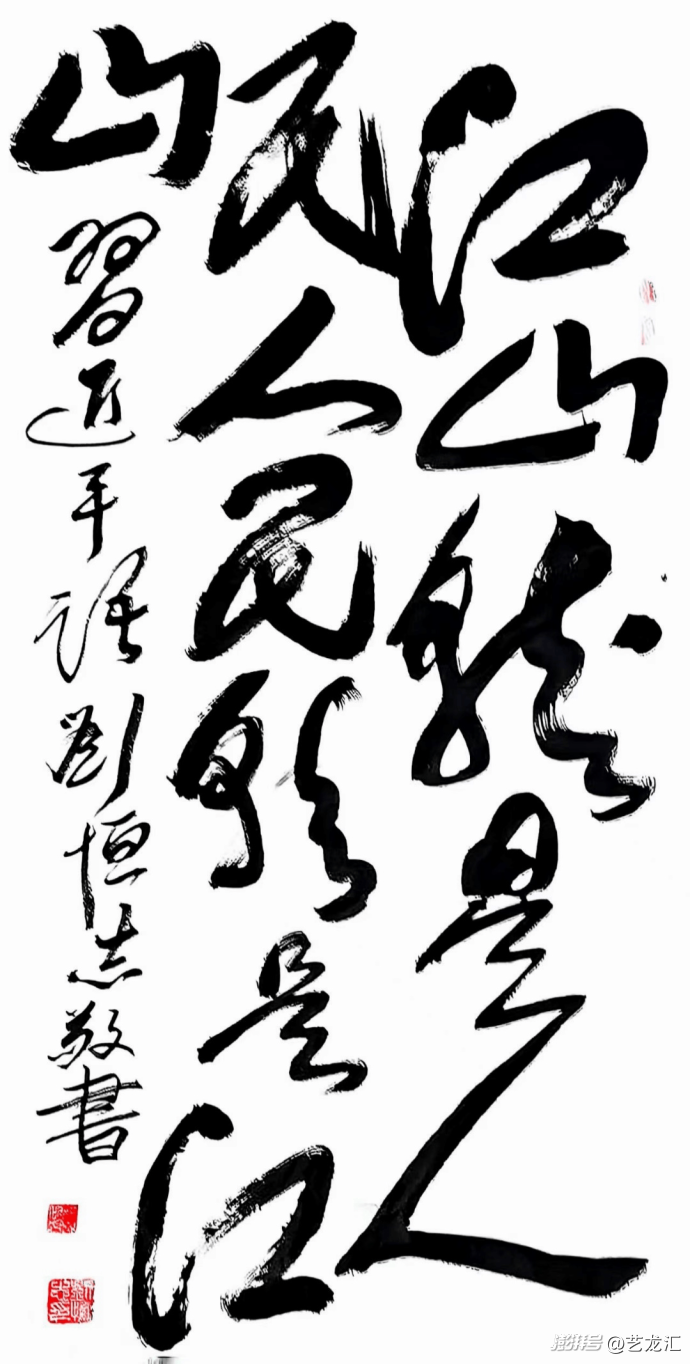 江山就是人
民人民就是江
山
習近平語劉恒志敬書
澎湃号@艺龙汇